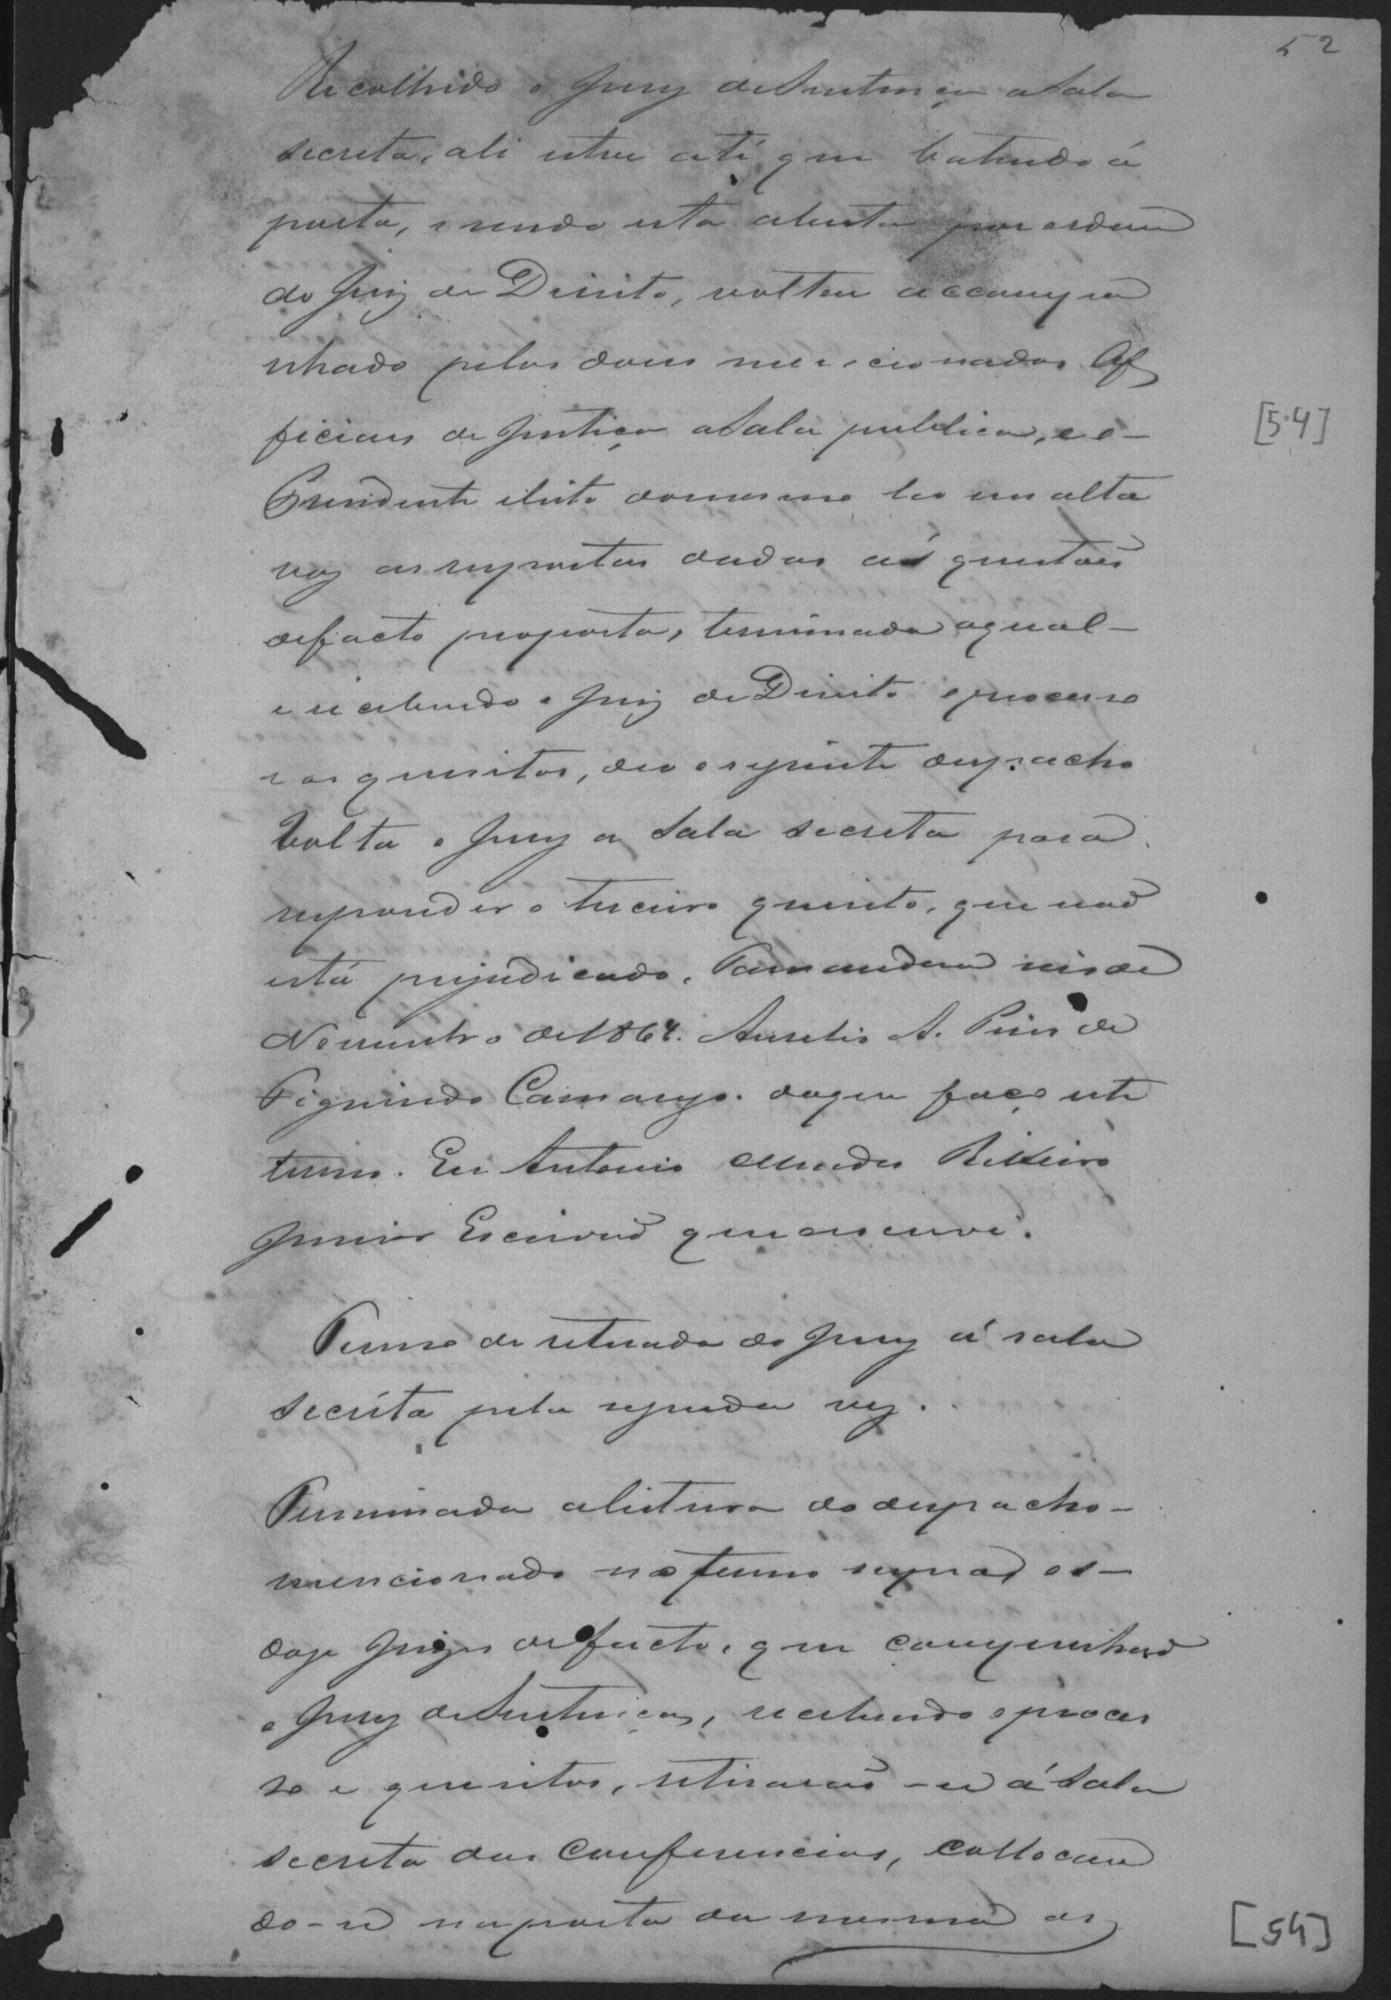 52
Recolhido o Jury de Sentença a Sala
secreta, ali esteve até que batendo á
porta, e sendo esta aberta por ordem
do Juiz de Direito, voltou accompa
nhado pelos dous mencionados Of
ficiaes de Justiça a Sala publica, e o -
Presidente eleito do mesmo leo em alta
voz as respostas dadas ás questões
de facto propostas, terminada a qual -
e recebendo o Juiz de Direito o processo
e os quesitos, deo o seguinte despacho
Volta o Jury a Sala secreta para
responder o terceiro quesito, que naõ
está prejudicado. Tamandua seis de
Novembro de 1864. Aurelio A. Pires de
Figueiredo Camargo. do que faço este
termo. Eu Antonio Mendes Ribeiro
Junior Escrivaõ que escrevi.
Termo de retirada do Jury á sala
secréta pela segunda vez.
Terminada a leitura do despacho -
mencionado no termo supra, os -
doze Juizes de facto, que compunhaõ
o Jury de Sentença, recebendo o proces
so e quesitos, retiraraõ-se á Sala
secreta das Conferencias, collocan
do-se na porta da mesma os
[54]
[54]